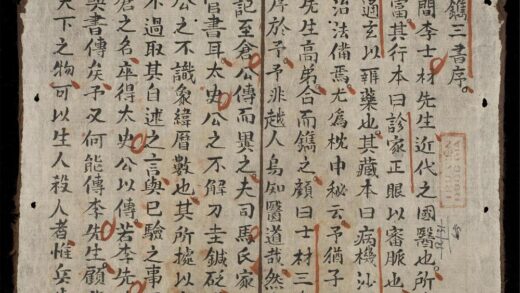 鐫三書序。
間李士材先生近代之國醫也所
富其行本曰診家正眼以審脈也
通玄以辨藥也其藏本曰病機沙
治法備焉尤為枕中秘云予猶子
先生高弟合而鐫之顏曰士材三
序於予予非越人烏知醫道哉然
記至倉公傳而異之夫司馬氏家
官書耳太史公之不解刀圭鍼砭
公之不識象緯曆數也其所據以
不過取其自述之言與已驗之事
倉之名卒得太史公以傳若李先
書傳矣予又何能傳李先生顧
天下之物可以生人殺人者惟兵